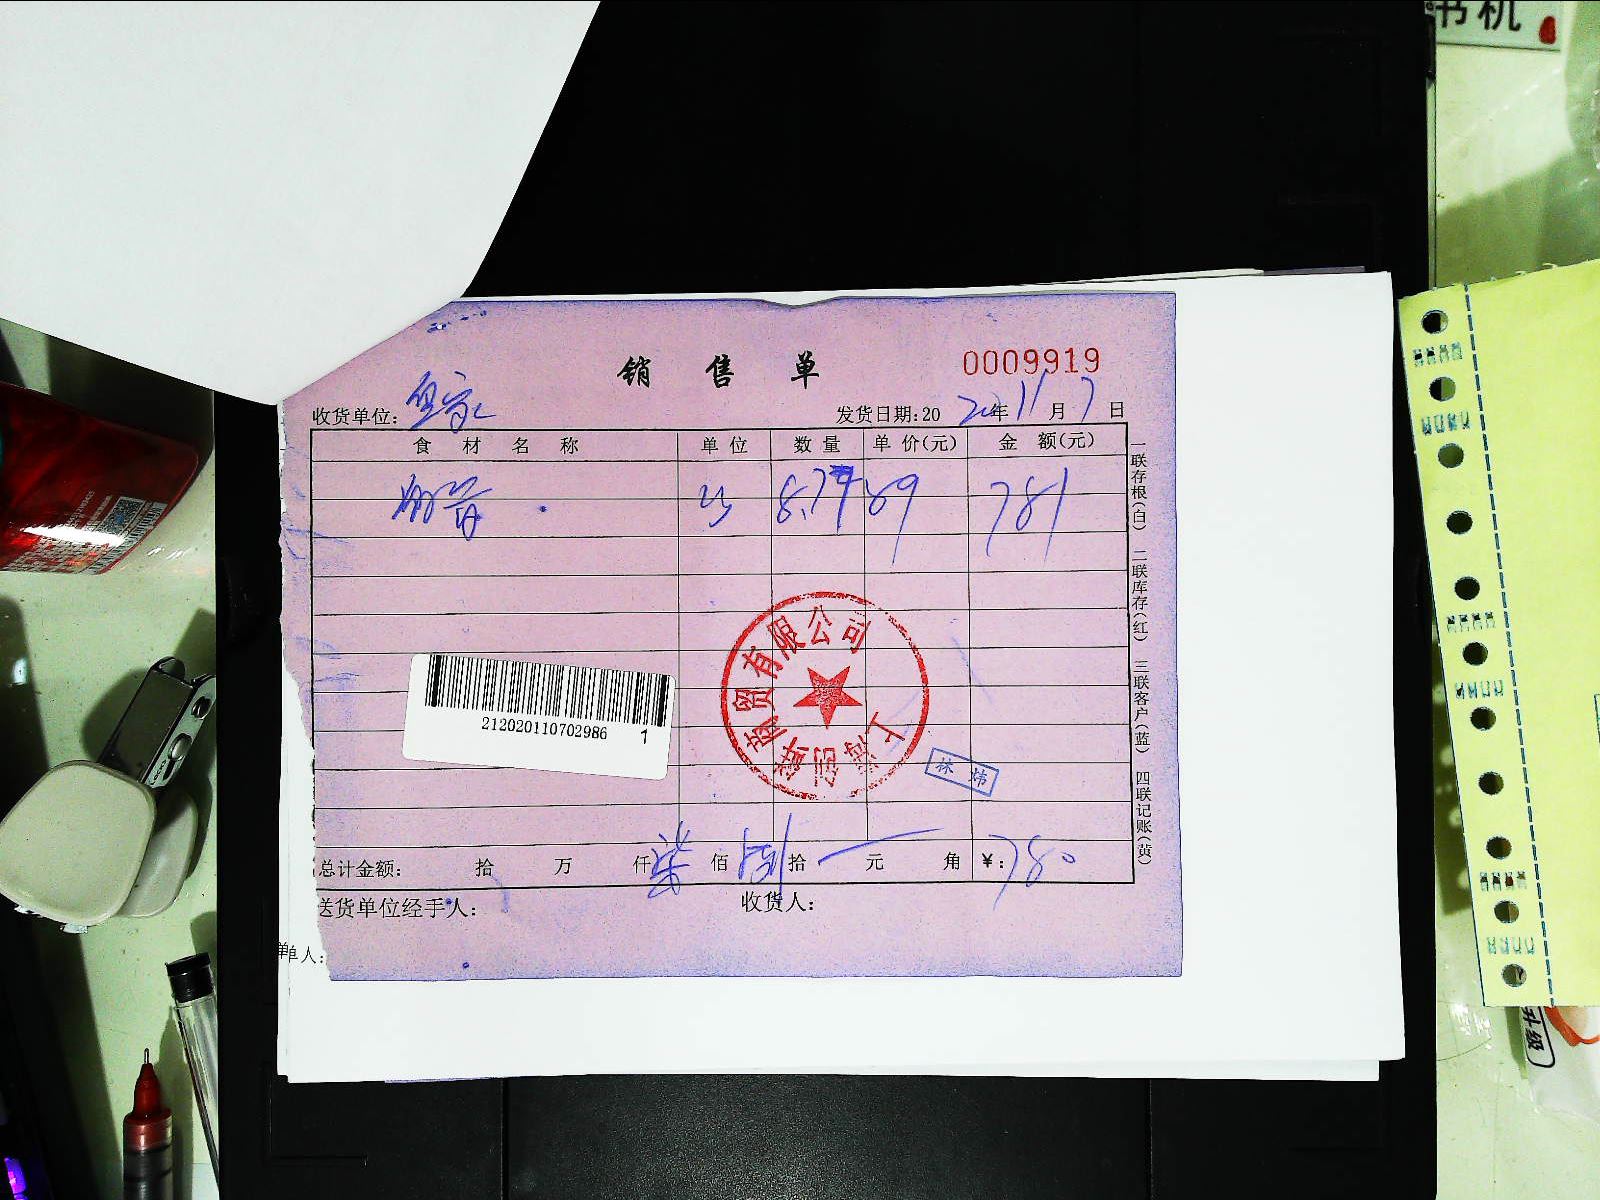 书机
销 售 单
0009919
收货单位: 宜家
发货日期:20 20年 11月 7日
食 材 名 称 单 位 数 量 单 价(元) 金 额(元)
89 781
一联存根(白) 二联库存(红) 三联客户(蓝) 四联记账(黄)
212020110702986 1
林炜
总计金额: 拾 万 仟 柒 佰 捌 拾 元 角 ¥: 780
送货单位经手人: 收货人:
单人:
升级